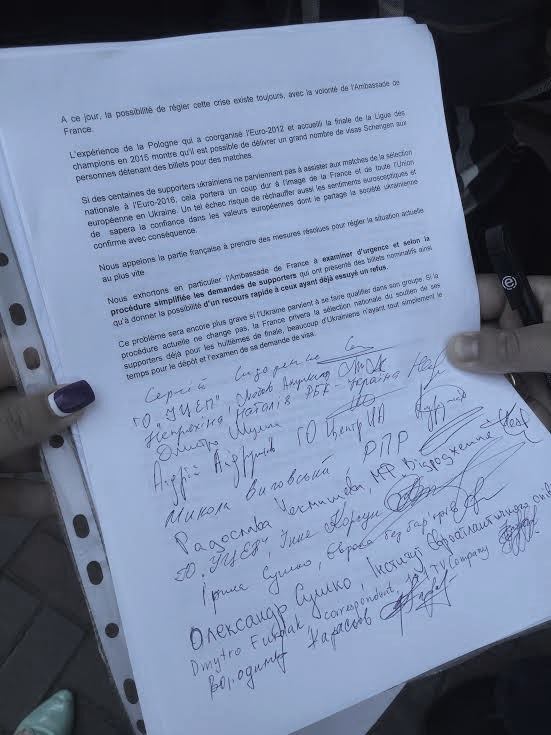 A ce jour, la possibilité de régler cette crise existe toujours, avec la volonté de l'Ambassade de
France.
L'expérience de la Pologne qui a coorganisé l'Euro-2012 et accueilli la finale de la Ligue des
champions en 2015 montre qu'il est possible de délivrer un grand nombre de visas Schengen aux
personnes détenant des billets pour des matches.
Si des centaines de supporters ukrainiens ne parviennent pas à assister aux matches de la sélection
nationale à l'Euro-2016, cela portera un coup dur à l'image de la France et de toute l'Union
européenne en Ukraine. Un tel échec risque de réchauffer aussi les sentiments eurosceptiques et
de sapera la confiance dans les valeurs européennes dont le partage la société ukrainienne
confirme avec conséquence.
Nous appelons la partie française à prendre des mesures résolues pour régler la situation actuelle
au plus vite
Nous exhortons en particulier l'Ambassade de France à examiner d'urgence et selon la
procédure simplifiée les demandes de supporters qui ont présenté des billets nominatifs ainsi
qu'à donner la possibilité d'un recours rapide à ceux ayant déjà essuyé un refus.
Ce problème sera encore plus grave si l'Ukraine parvient à se faire qualifier dans son groupe. Si la
procédure actuelle ne change pas, la France privera la sélection nationale du soutien de ses
supporters déjà pour les huitièmes de finale, beaucoup d'Ukrainiens n'ayant tout simplement le
temps pour le dépôt et l'examen de sa demande de visa.
Сергій Сидоренко
ГО "УЦЕП", Любов Акуленко
Непряхіна Наталія РБК-Україна
Дмитро
Андрій ГО Центр UA
Микола Виговський, РПР
Радослава МФ Відродження
ГО, УЦЕП, Інна
Ірина Сушко, Європа без бар'єрів
Олександр Сушко, Інститут Євроатлантичн
Dmytro correspondent, TV Company
Володимир Карасьов